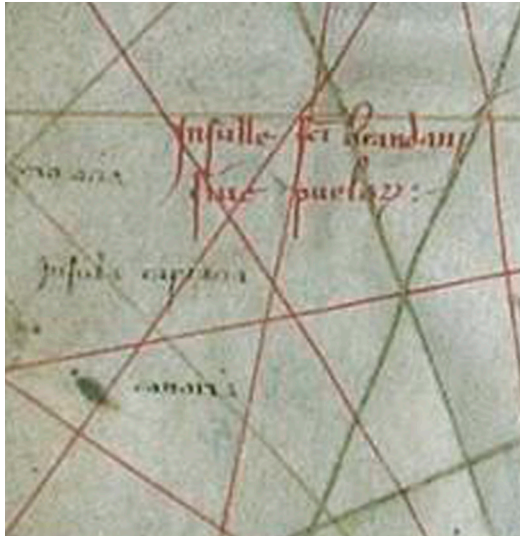 Insulle sci brandany
siue puelaȝ:
insula capraria
canaria